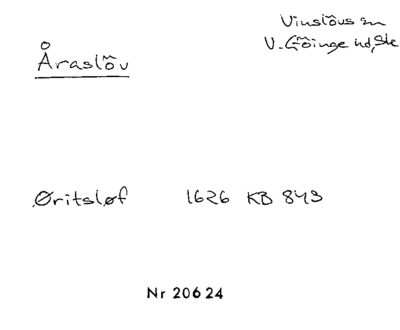 Vinslövs sn
V. Göinge hd, Sk
Åraslöv
Øritsløf 1626 KB 843
Nr 20624